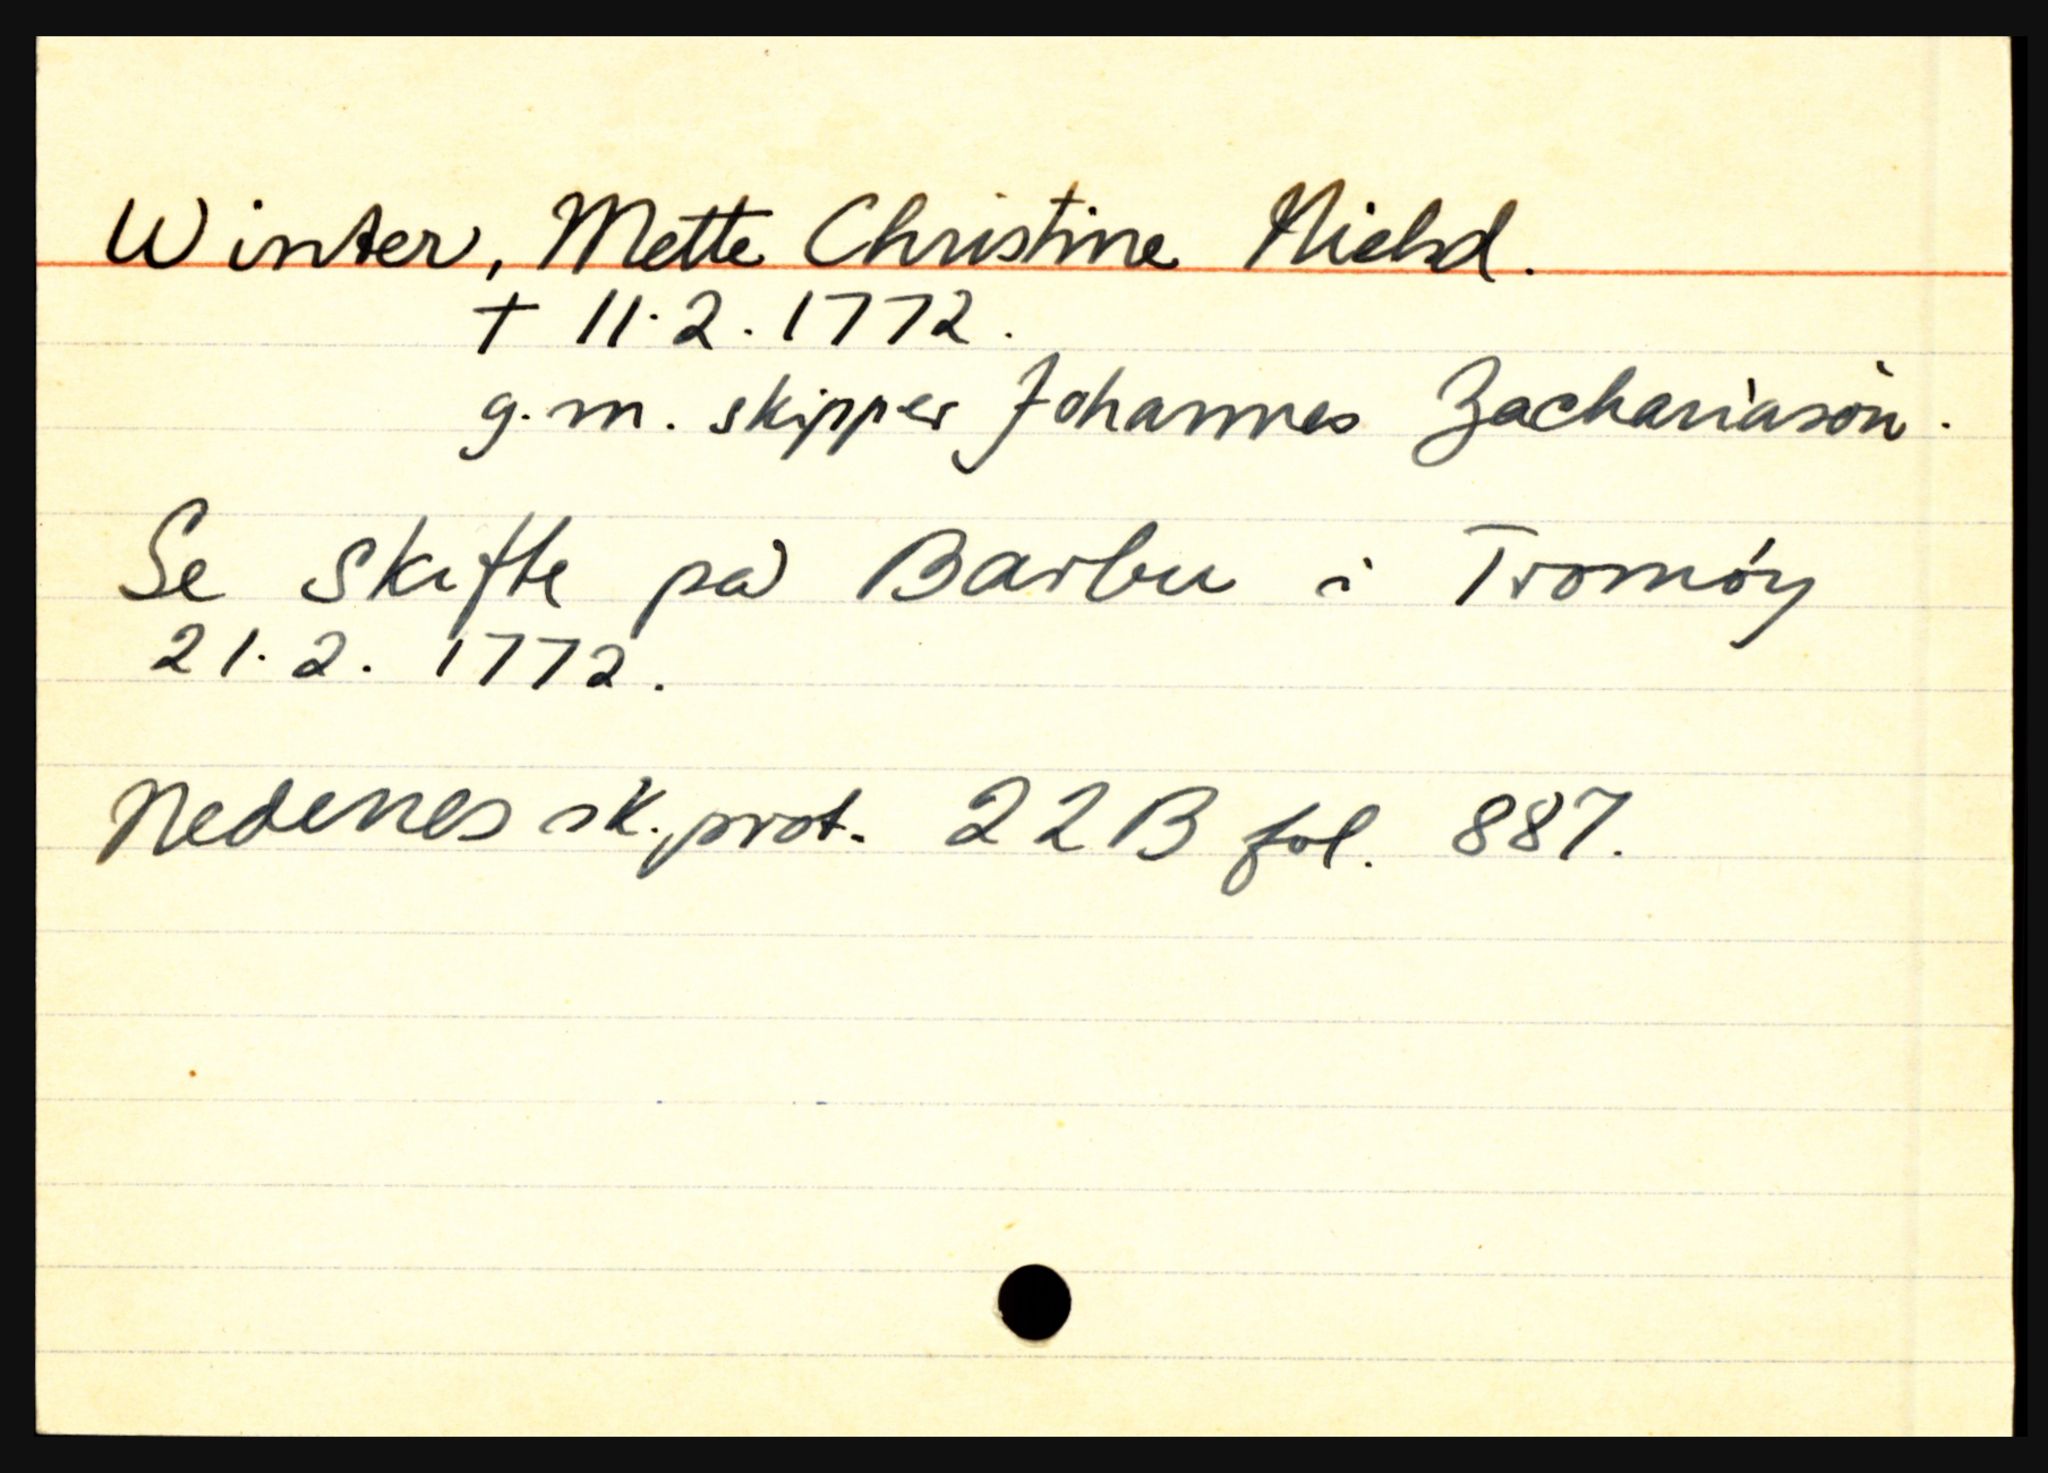 Winter, Mette Christine Nielsd.
† 11.2.1772.
g.m. skipper Johannes Zachariasøn.
Se skifte på Barbu i Tromøy
21.2.1772.
Nedenes sk.prot. 22B fol. 887.